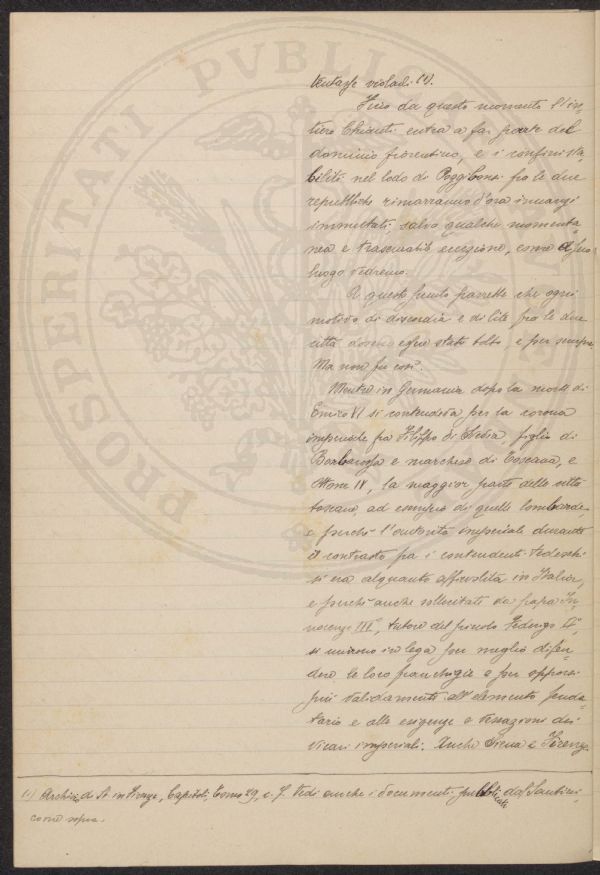 tentasse violarli (1).
Fino da questo momento l'in-
tiero Chianti entra a far parte del
dominio fiorentino, e i confini sta-
biliti nel lodo di Poggibonsi fra le due
repubbliche rimarranno d'ora innanzi
immutati, salvo qualche momenta-
nea e trascurabile eccezione, come a suo
luogo vedremo.
A questo punto parrebbe che ogni
motivo di discordia e di lite fra le due
città dovesse essere stato tolto e per sempre
Ma non fu così.
Mentre in Germania dopo la morte di
Enrico VI si contendeva per la corona
imperiale fra Filippo di Svevia, figlio di
Barbarossa e marchese di Toscana, e
Ottone IV, la maggior parte delle città
toscane, ad esempio di quelle lombarde
e perchè l'autorità imperiale durante
il contrasto fra i contendenti tedeschi
si era alquanto affievolita in Italia,
e perchè anche sollecitati da papa In-
nocenzo III°, tutore del piccolo Federigo II°,
si unirono in lega per meglio difen-
dere le loro franchigie e per opporsi
più validamente all'elemento feuda-
tario e alle esigenze e vessazioni dei
vicari imperiali. Anche Siena e Firenze
(1) Archivio di St. in Firenze, Capitoli, Tomo 29, c. 7. Vedi anche i documenti pubblicati dal Santini,
come sopra.
PROSPERITATI PVBLICAE